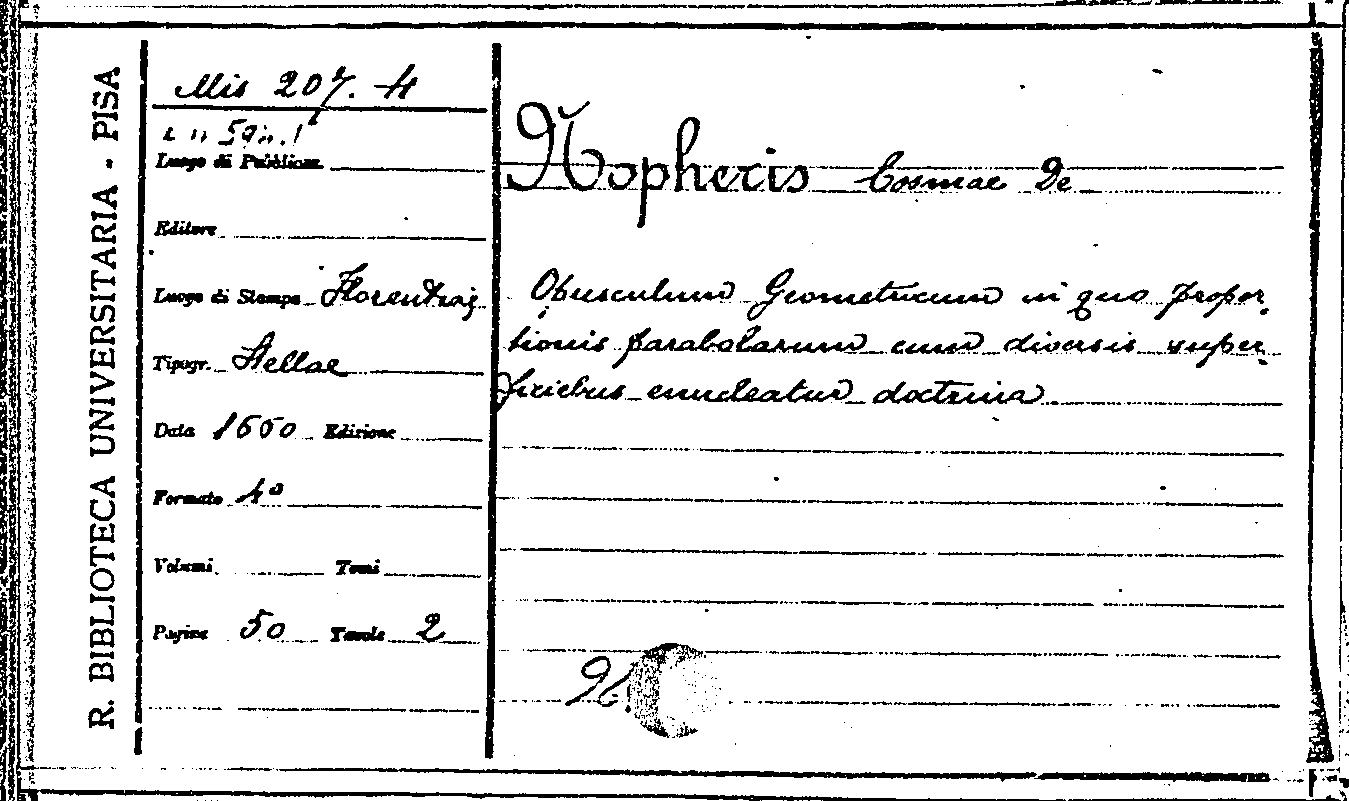 R. BIBLIOTECA UNIVERSITARIA - PISA
Mis 207. 4
Luogo di Pubblicaz.
Editore
Luogo di Stampa Florentiae
Tipogr. Stellae
Data 1660 Edizione
Formato 4°
Volumi Tomi
Pagine 50 Tavole 2
Nopheris Cosmae De
Opusculum Geometricum in quo propor
tionis parabolarum cum diversis super
ficiebus enucleatur doctrina.